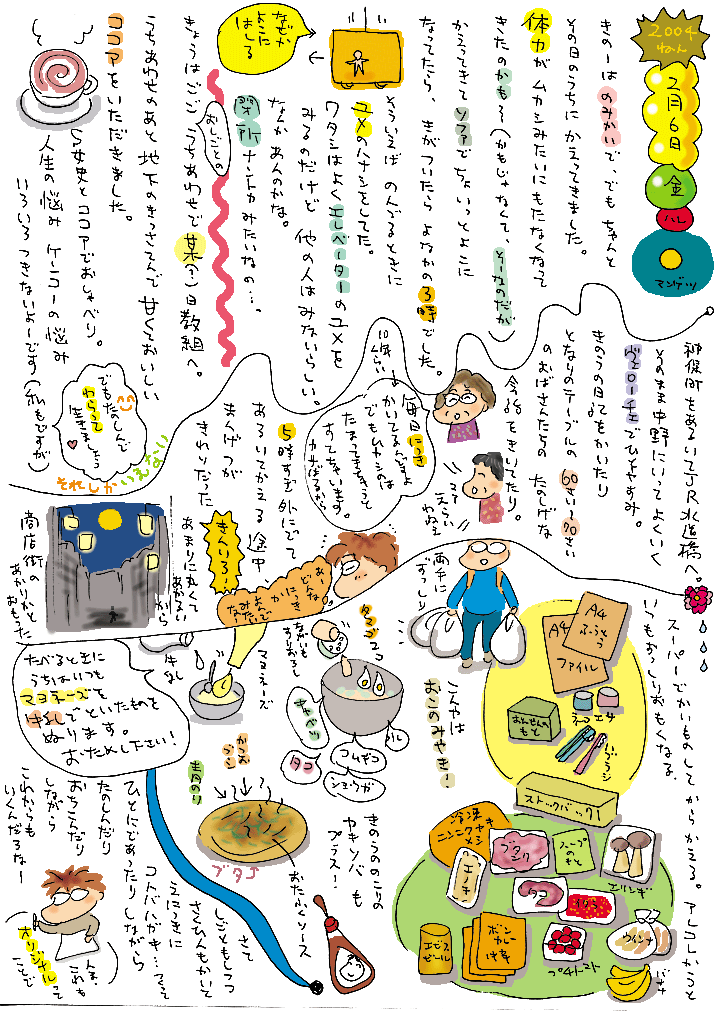 2004
ねん
2月6日
金
ハレ
マンゲツ
きのーは のみかいで、でも ちゃんと
その日のうちに かえってきました。
体力が ムカシみたいに もたなくなって
きたのかも〜（かもじゃなくて、そーなのだが
かえってきて ソファで ちょいっとよこに
なってたら、きがついたら よなかの3時でした。
そういえば のんでるときに
ユメのハナシをしてた。
ワタシはよく エレベーターの ユメを
みるのだけど 他の人はみないらしい。
なんかあんのかな。
なぜか
よこに
はしる
きょうはごご おしごとの うちあわせで 某(?)日教組へ。
うちあわせのあと 地下のきっさてんで 甘くておいしい
ココアをいただきました。
S女史とココアでおしゃべり。
人生の悩み ケンコーの悩み
いろいろ つきないよーです（私もですが）
でもたのしんで
わらって
生きましょう
それしかいえない
神保町をあるいてJR水道橋へ。
そのまま中野にいってよくいく
ヴェローチェでひとやすみ。
きのうの日てをかいたり
となりのテーブルの 60さい〜70さい
のおばさんたちの たのしげな
会話をきいてたり。
10年くらい
毎日にっき
かいてるんですよ
でもムカシのは
たまってきちゃうと
すてちゃいます。
えらい
わねえ
5時すぎ 外にでて
あるいてかえる途中
まんげつが
きれいだった
きんいろ!
あまりに丸くて
あかるい
から
商店街の
あかりかと
おもった
スーパーでかいものしてからかえる。アレコレかうと
いつもずっしりおもくなる。
両手に
ずっしり
A4
A4
ふうとう
ファイル
おんせんの
もと
ネコ エサ
ハブラシ
ストックバック1
冷凍
ニンニクヤキ
メシ
ブタ
ニク
スープ
のもと
エリンギ
エノキ
タコ
イチゴ
ウインナ
エビス
ビール
ボン
カレー
プチトマト
バナナ
こんやは
おこのみやき!
タマゴ2コ
ながいも
すりおろし
キャベツ
タコ
コムギコ
ショウガ
マヨネーズ
牛乳
たべるときに
うちはいつも
マヨネーズを
牛乳でといたものを
ぬります。
おためし下さい!
かつお
ブシ
青のり
ブタ玉
おたふくソース
きのうののこりの
ヤキソバも
プラス!
さて
しごともしつつ
さくひんもかいて
えにっきに
コトバハガキ…つくって
ひとにであったりしながら
たのしんだり
おちこんだり
しながら
これからも
いくんだろなー
人生、
これも
オリジナルって
ことで